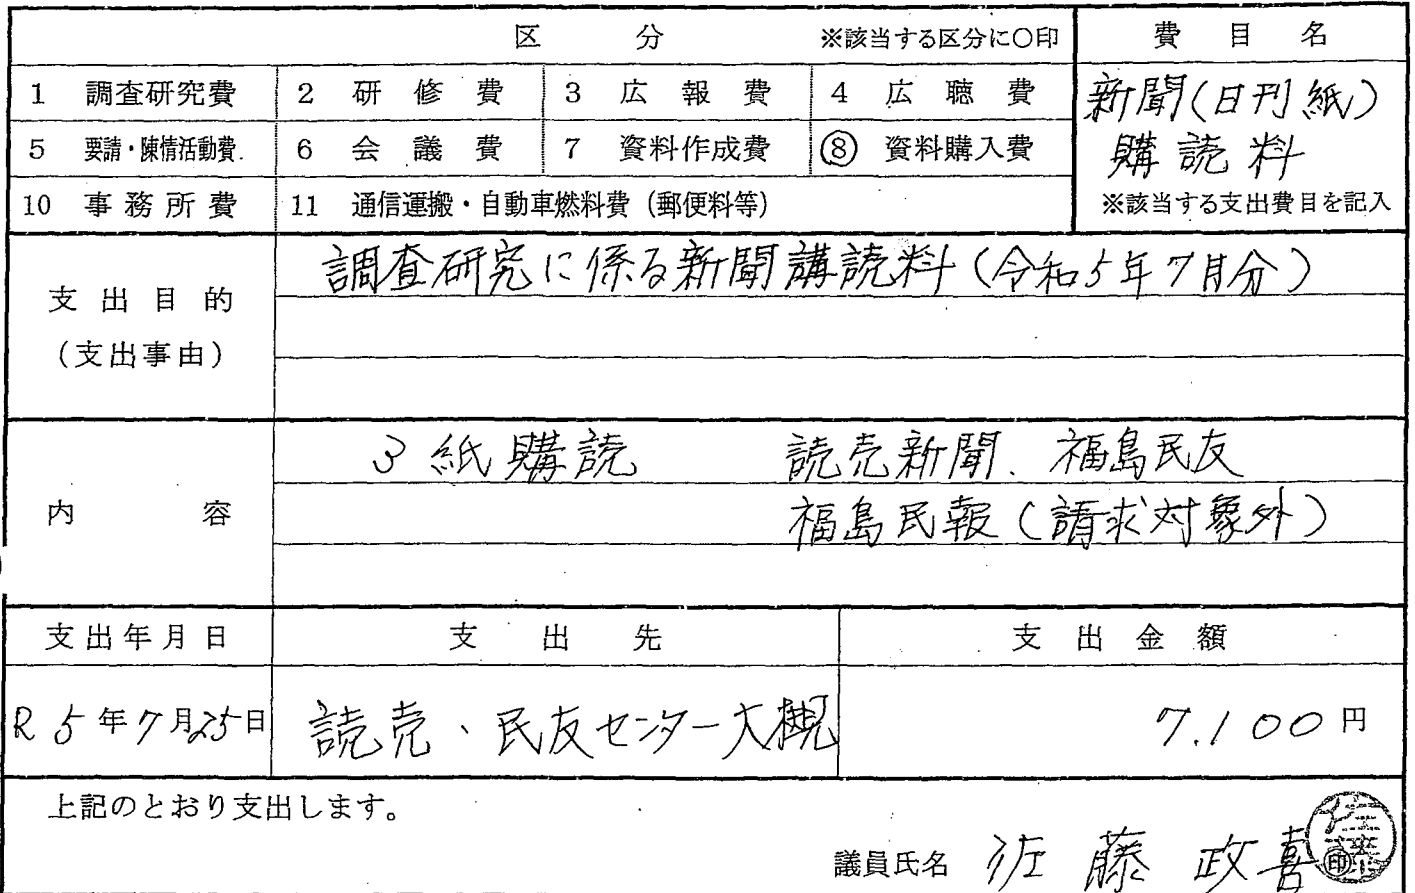 区分 ※該当する区分に○印 費目名
1 調査研究費 2 研修費 3 広報費 4 広聴費 新聞(日刊紙)
5 要請・陳情活動費 6 会議費 7 資料作成費 ⑧ 資料購入費 購読料
10 事務所費 11 通信運搬・自動車燃料費(郵便料等) ※該当する支出費目を記入
支出目的
(支出事由)
調査研究に係る新聞講読料(令和5年7月分)
内容
3紙購読 読売新聞、福島民友
福島民報(請求対象外)
支出年月日 支出先 支出金額
R5年7月25日 読売、民友センター大槻 7,100円
上記のとおり支出します。
議員氏名 佐藤政喜 印
佐藤